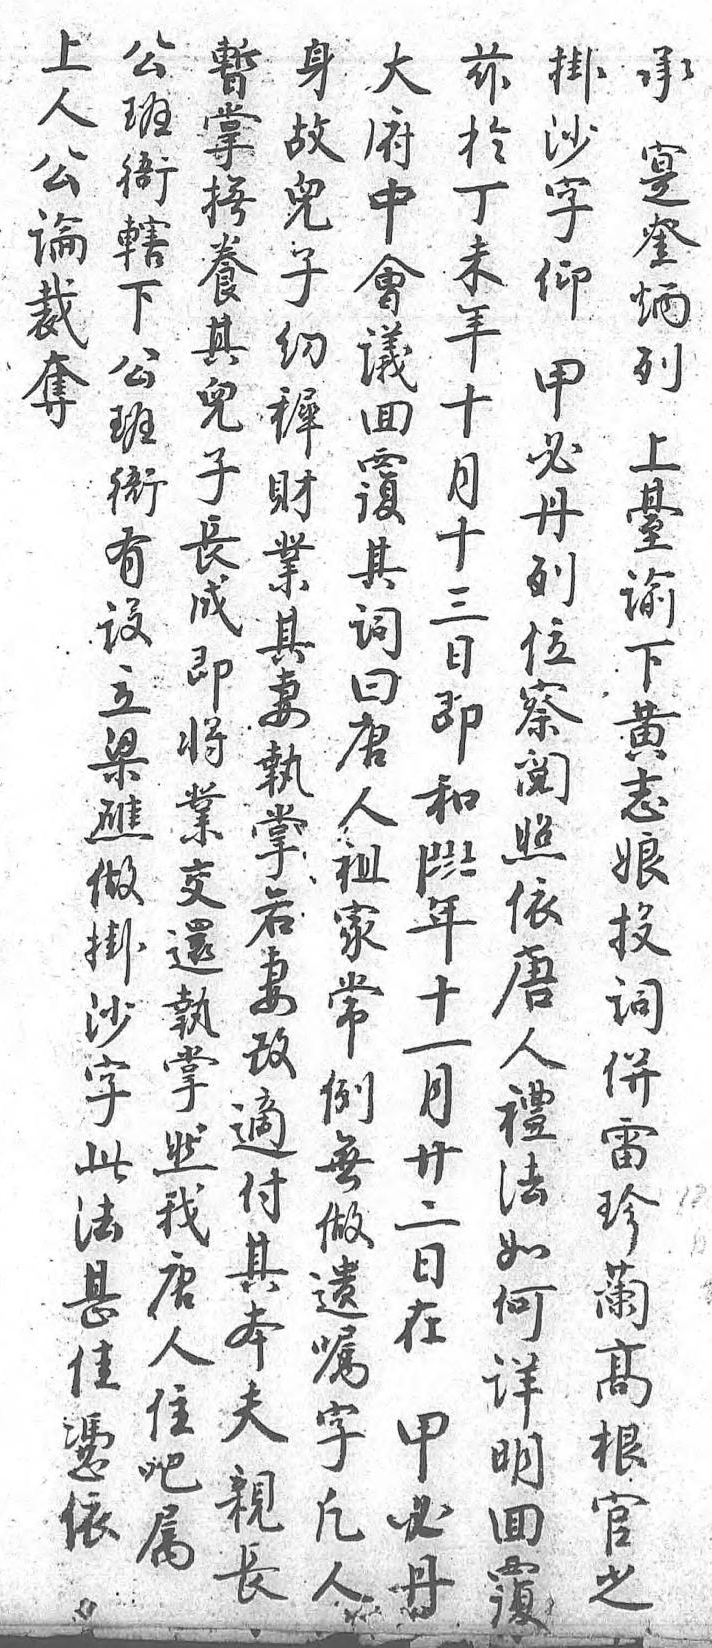 承　寔奎炳列　上臺諭下黃志娘投詞併雷珍蘭高根官之
掛沙字仰　甲必丹列位察閱照依唐人禮法如何詳明回覆
茲於丁未年十月十三日即和年十一月廿二日在　甲必丹
大府中會議回覆其詞曰唐人祖家常例無做遺囑字凡人
身故兒子幼穉財業其妻執掌若妻改適付其本夫親長
暫掌撫養其兒子長成即將業交還執掌然我唐人住吧属
公班衙轄下公班衙有設立梁礁做掛沙字此法甚佳憑依
上人公論裁奪